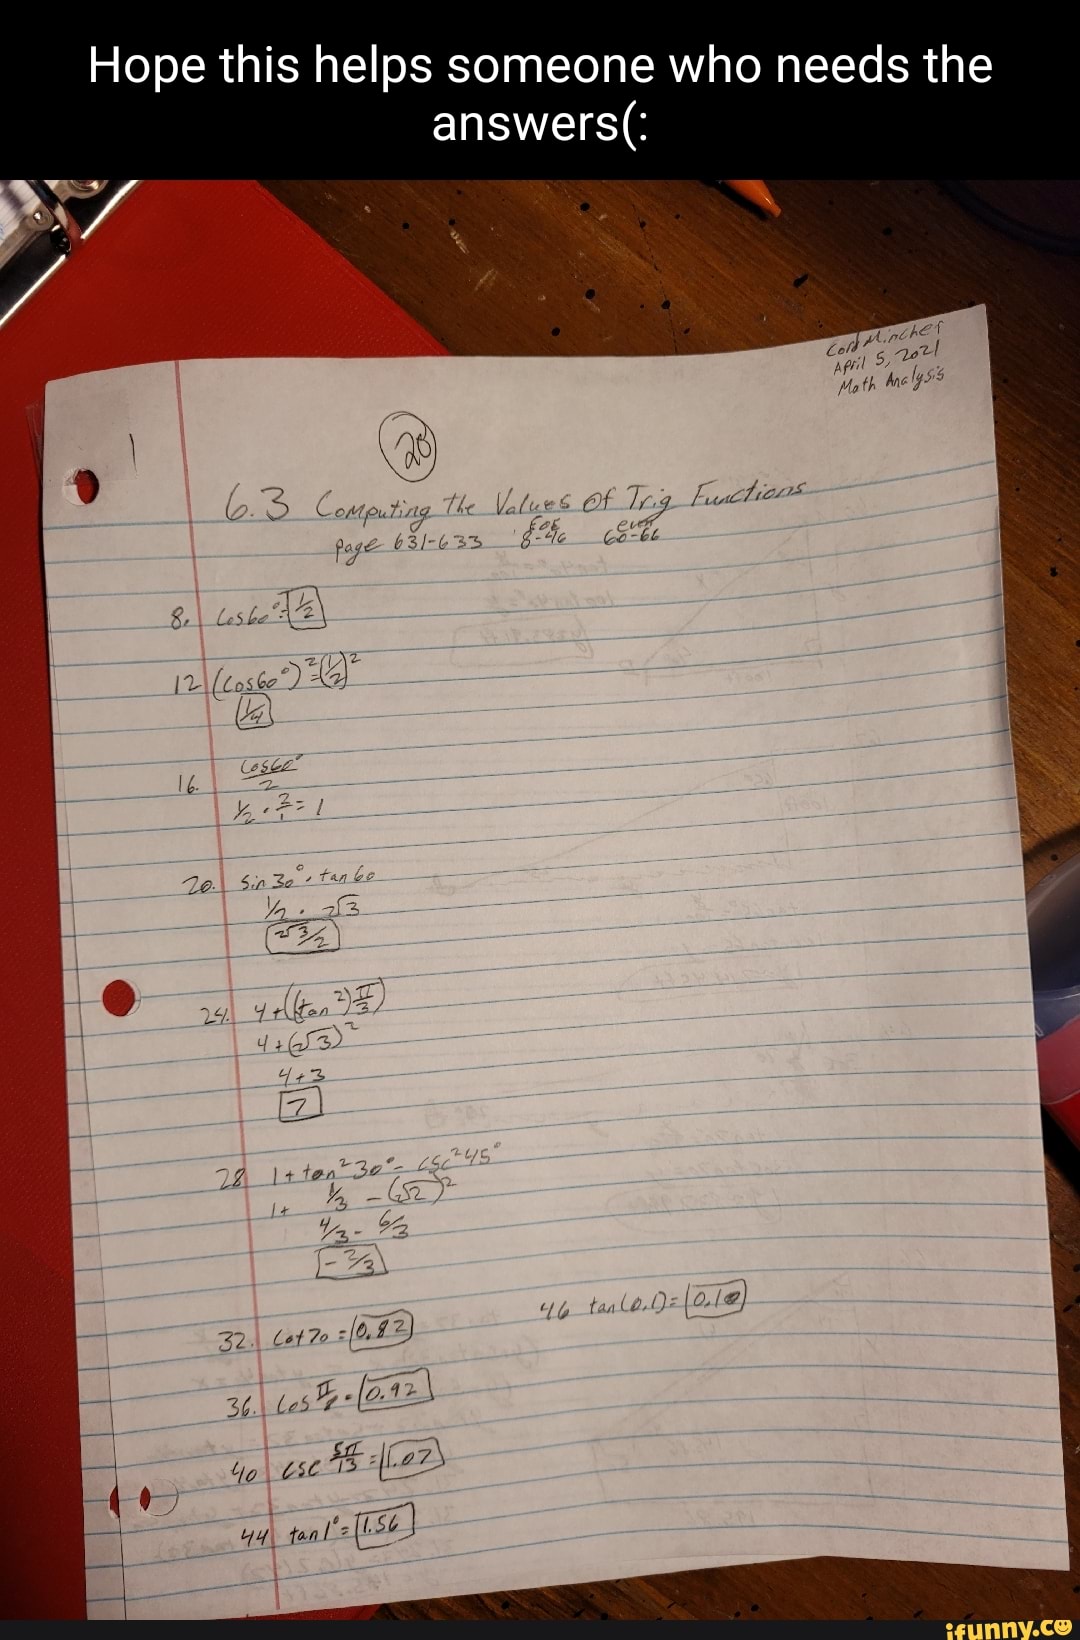 Hope this helps someone who needs the
answers(:
April 5, 2021
Math Analysis
20
6.3 Computing the Values Of Trig Functions
page 631-633 EOE 8-46 even 60-66
8. Cos60°=1/2
12 (Cos60°)²=(1/2)²
1/4
16. Cos60°/2
1/2 · 2/1 = 1
20. Sin 30° · tan 60
1/2 · √3
√3/2
24. 4+((tan²)π/3)
4+(√3)²
4+3
7
28 1+tan²30°-csc²45°
1+ 1/3 -(√2)²
4/3 - 6/3
-2/3
46 tan(0.1)=0.10
32. Cot70=0.82
36. Cos π/8=0.92
40 csc 5π/13=1.07
44 tan1°=1.56
ifunny.co